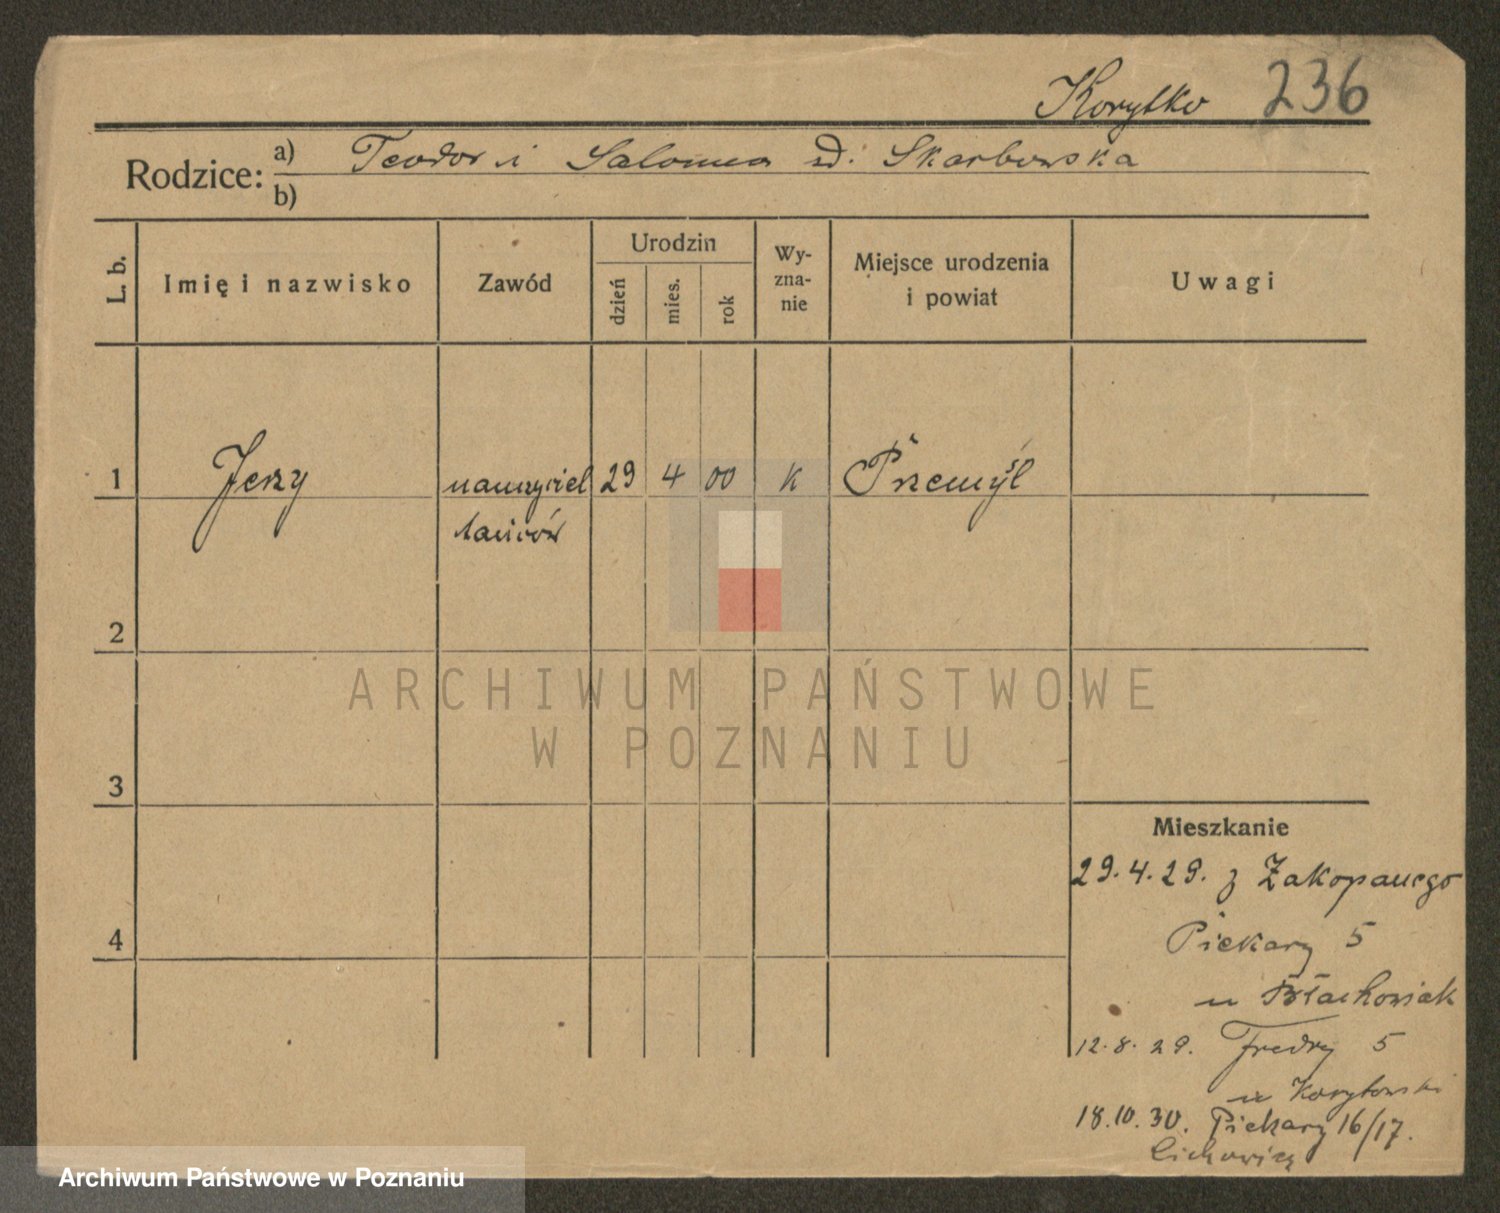 Korytko 236
Rodzice: a) Teodor i Salomea zd. Skarbowska
b)
L. b.
Imię i nazwisko
Zawód
Urodzin
dzień
mies.
rok
Wy-
zna-
nie
Miejsce urodzenia
i powiat
Uwagi
1 Jerzy nauczyciel 29 4 00 k Przemyśl
tańców
2
ARCHIWUM PAŃSTWOWE
W POZNANIU
3
Mieszkanie
29.4.29. z Zakopanego
4
Piekary 5
u Błachowiak
12.8.29. Fredry 5
u Korytowski
18.10.30. Piekary 16/17.
Archiwum Państwowe w Poznaniu